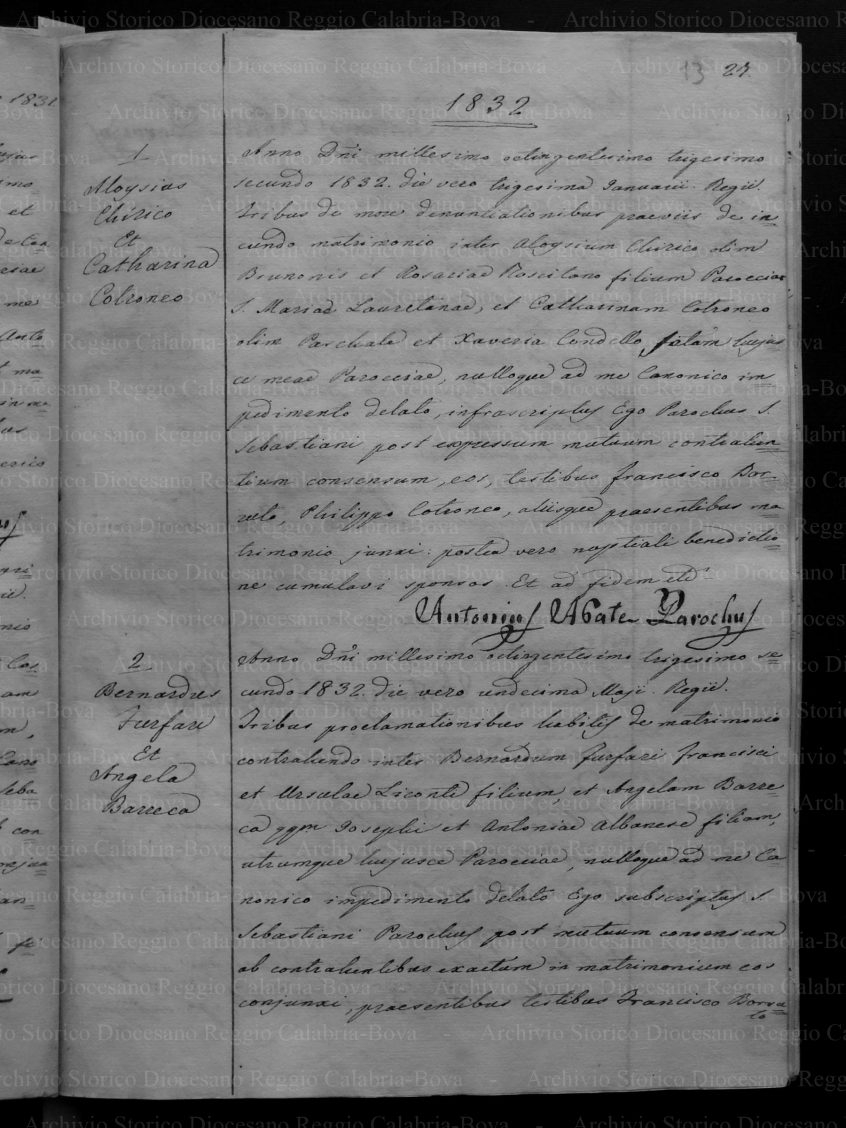 13 27.
1832
1
Aloysius
Chirico
Et
Catharina
Cotroneo
Anno Dñi millesimo octingentesimo trigesimo
secundo 1832. die vero trigesima Januarii. Regii.
Tribus de more denuntiationibus praeviis de in=
eundo matrimonio inter Aloysium Chirico olim
Brunonis et Rosariae filium Paroeciae
S. Mariae Lauretanae, et Catharinam Cotroneo
olim Paschale et Xaveria Condello, filiam hujus=
ce meae Paroeciae, nulloque ad me Canonico im=
pedimento delato, infrascriptus Ego Parochus S.
Sebastiani post expressum mutuum contrahen=
tium consensum, eos, testibus Francisco Bor=
ruto, Philippo Cotroneo, aliisque praesentibus ma=
trimonio junxi: postea vero nuptiali benedictio=
ne cumulavi sponsos. Et ad fidem etc.
Antonius Abate Parochus
2
Bernardus
Furfari
Et
Angela
Barreca
Anno Dñi millesimo octingentesimo trigesimo se=
cundo 1832. die vero undecima Maji. Regii.
Tribus proclamationibus habitis de matrimonio
contrahendo inter Bernardum Furfari Francisci
et Ursulae Liconti filium, et Angelam Barre=
ca qqm Josephi et Antoniae Albanese filiam,
utrumque hujusce Paroeciae, nulloque ad me Ca=
nonico impedimento delato Ego subscriptus S.
Sebastiani Parochus post mutuum consensum
ab contrahentibus exactum in matrimonium eos
conjunxi, praesentibus testibus Francisco Borru=
to